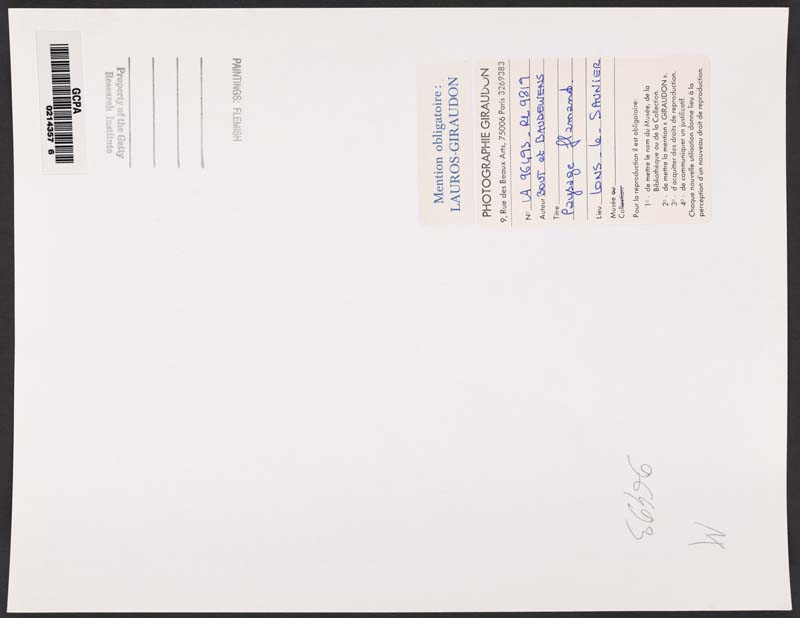 GCPA
0214357 6
Property of the Getty
Research Institute
PAINTINGS, FLEMISH
Mention obligatoire :
LAUROS-GIRAUDON
PHOTOGRAPHIE GIRAUDON
9, Rue des Beaux Arts, 75006 Paris 3269383
N° LA 96493 - RL 9817
Auteur BOUT et BAUDEWENS
Titre
Paysage flamand.
Lieu LONS - le - SAUNIER
Musée ou
Collection
Pour la reproduction il est obligatoire:
1° - de mettre le nom du Musée, de la
Bibliothèque ou de la Collection.
2° - de mettre la mention « GIRAUDON ».
3° - d'acquitter des droits de reproduction.
4° - de communiquer un justificatif.
Chaque nouvelle utilisation donne lieu à la
perception d'un nouveau droit de reproduction.
96493